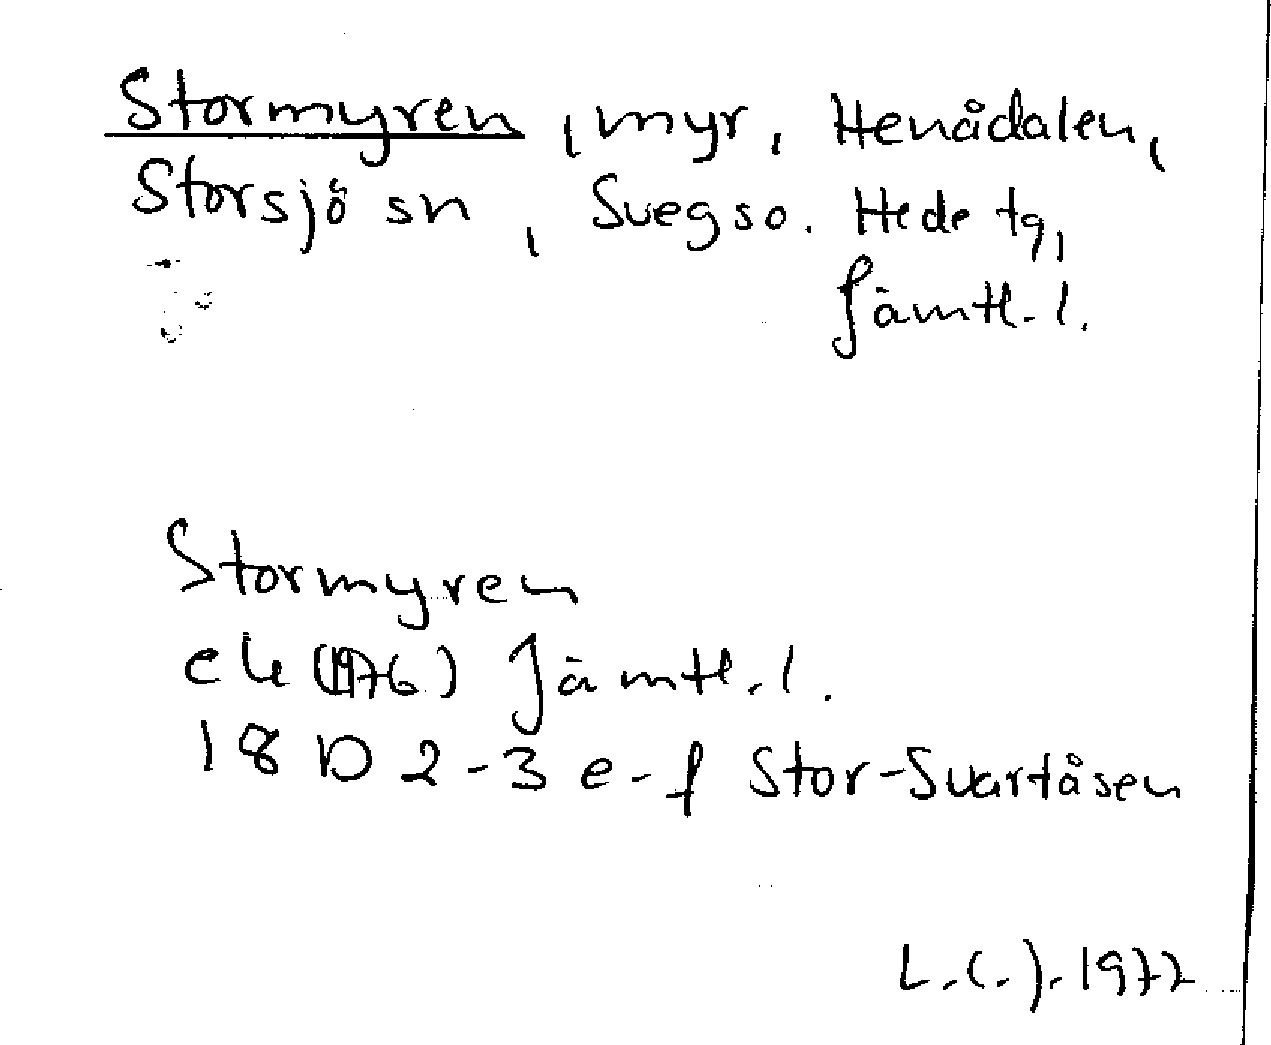 Stormyren, myr, Henådalen,
Storsjö sn, Svegs o. Hede tg,
Jämtl. l.
Stormyren
ek (1976) Jämtl. l.
18 D 2-3 e-f Stor-Svartåsen
L.C.J. 1977